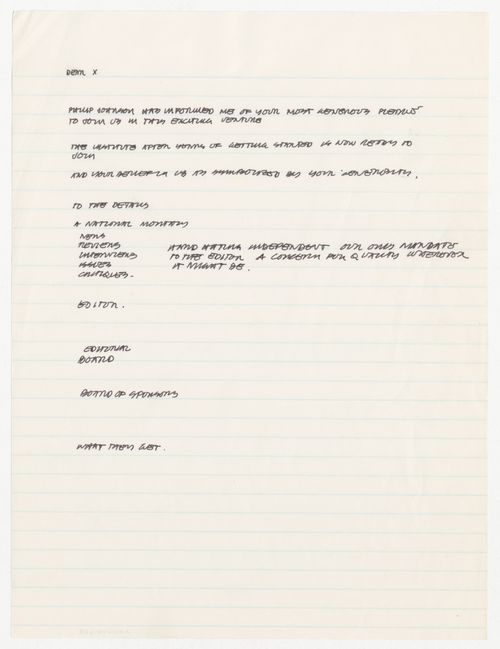 DEAR X
PHILIP JOHNSON HAS INFORMED ME OF YOUR MOST GENEROUS PLEDGE
TO JOIN US IN THIS EXCITING VENTURE
THE INSTITUTE AFTER YEARS OF GETTING STARTED IS NOW READY TO
JOIN
AND YOUR BELIEF IN US AS SYMBOLIZED BY YOUR GENEROSITY.
TO THE DETAILS
A NATIONAL MONTHLY
NEWS
REVIEWS HARD HITTING INDEPENDENT OUR ONLY MANDATE
INTERVIEWS TO THE EDITOR A CONCERN FOR QUALITY WHEREVER
ISSUES IT MIGHT BE.
CRITIQUES.
EDITOR.
EDITORIAL
BOARD
BOARD OF SPONSORS
WHAT THEY GET.